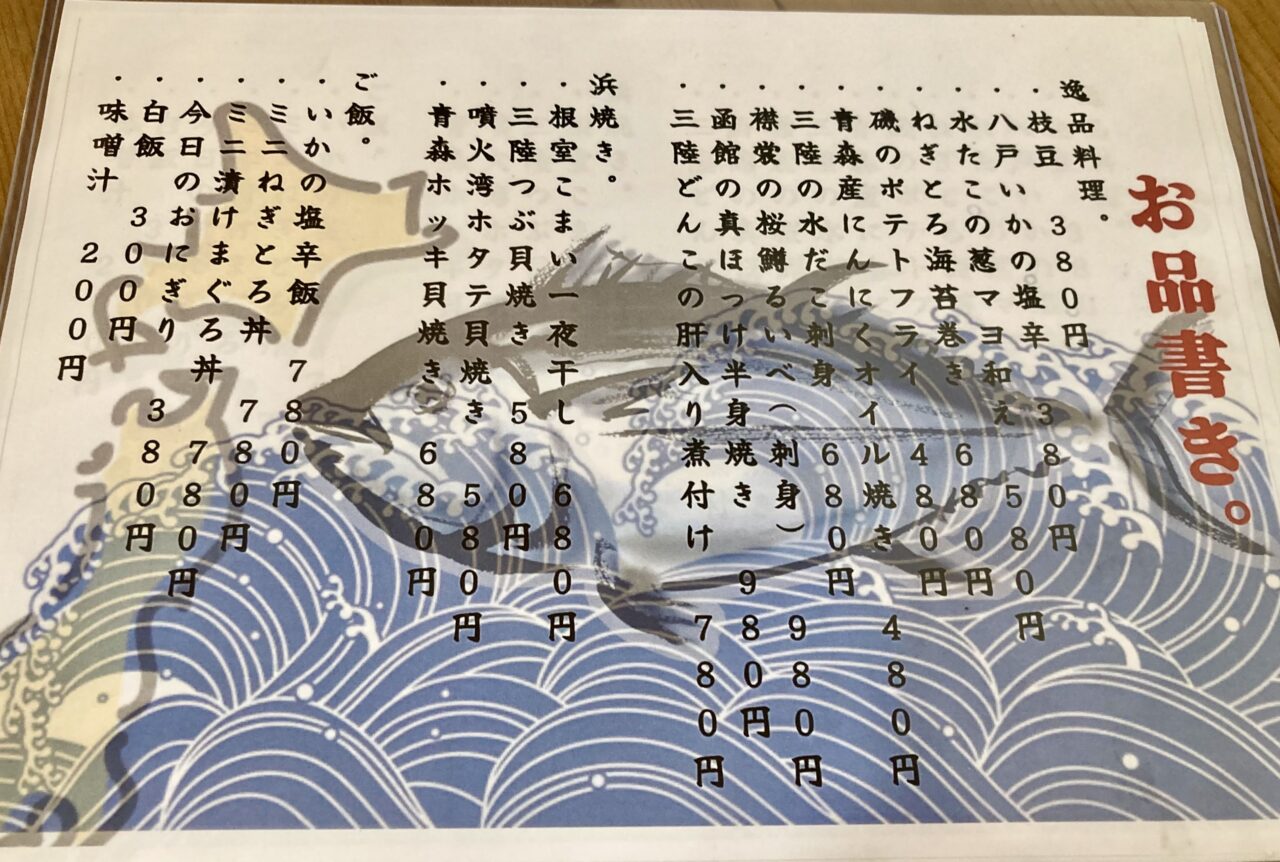 お品書き。
逸品料理。
・枝豆 380円
・八戸いかの塩辛 380円
・水たこの葱マヨ和え 580円
・ねぎとろ海苔巻き 680円
・磯のポテトフライ 480円
・青森産にんにくオイル焼き 480円
・三陸の水だこ刺身 680円
・襟裳の桜鱒るいべ(刺身) 980円
・函館の真ほっけ半身焼き 980円
・三陸どんこの肝入り煮付け 780円
浜焼き。
・根室こまい一夜干し 680円
・三陸つぶ貝焼き 580円
・噴火湾ホタテ貝焼き 580円
・青森ホッキ貝焼き 680円
ご飯。
・いかの塩辛飯 780円
・ミニねぎとろ丼 780円
・ミニ漬けまぐろ丼 780円
・今日のおにぎり 380円
・白飯 300円
・味噌汁 200円